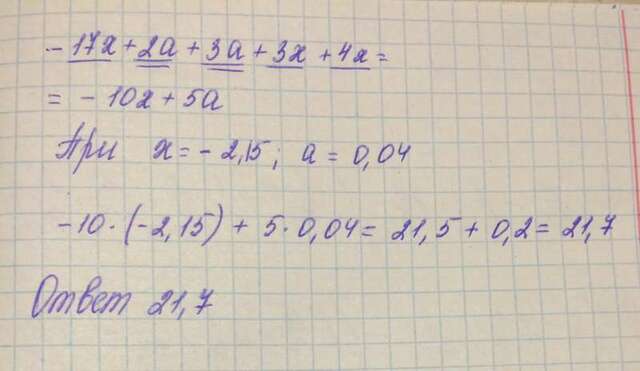 - 17x + 2a + 3a + 3x + 4x =
= - 10x + 5a
При x = - 2,15; a = 0,04
-10 · (-2,15) + 5 · 0,04 = 21,5 + 0,2 = 21,7
Ответ 21,7